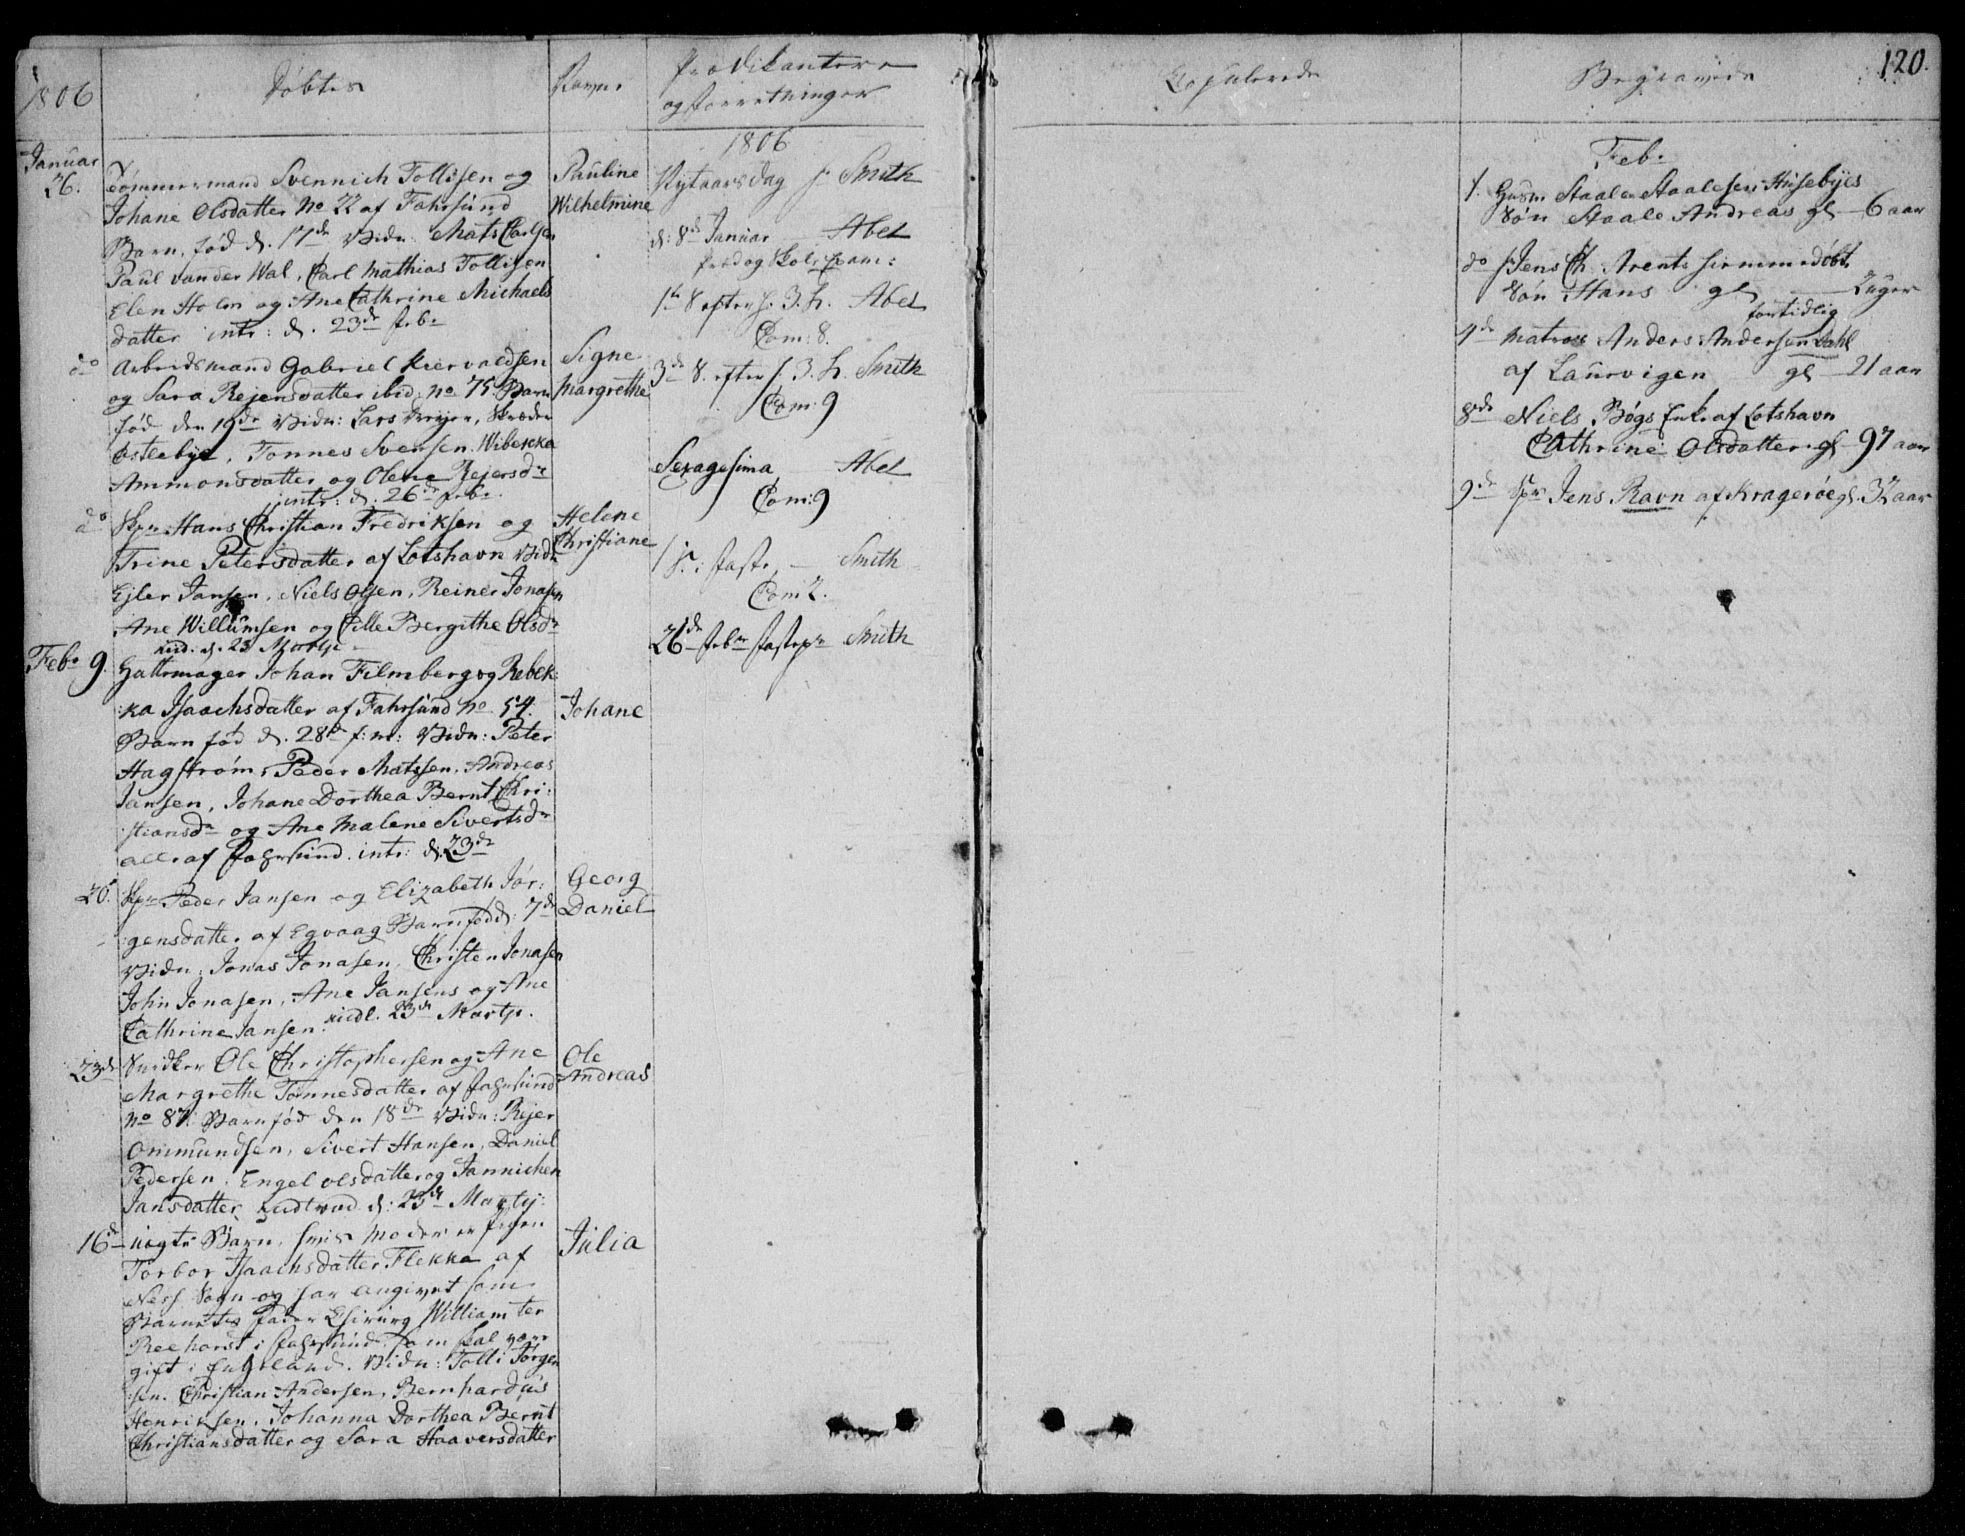 1806
Døbte
Navne
Prædikantere
og Forretninger
Januar
26.
Tømmermand Svennich Tollisen og
Johane Olsdatter No 22 af Fahrsund
Barn, fød d. 17de Vidn: Mats Carlsen
Paul vander Wal, Carl Mathias Tollisen
Elen Holm og Ane Cathrine Michaels
datter intr: d. 23de Febr
Pauline
Wilhelmine
do
Arbeidsmand Gabriel Kiervaldsen
og Sara Rejersdatter ibid: no 75 Barn
fød den 19de Vidn: Lars Drejer, Skræder
Østebye, Tønnes Svensen Wibekka
Ammonsdatter og Olene Rejersdr
intr: d. 26de Febr.
Signe
Margrethe
do
Skpr Hans Christian Fredriksen og
Trine Petersdatter af Lotshavn Vidn
Ejler Jansen, Niels Olsen, Reiner Jonasen
Ane Willumsen og Cille Bergithe Olsdr
indl. d. 23 Martji
Helene
Christiane
Febr 9.
Hattemager Johan Filmberg og Rebek:
:ka Isaachsdatter af Fahrsund No 54.
Barn fød d. 28de f: m: Vidn: Peter
Hagstrøm, Peder Matssen, Andreas
Jansen, Johane Dorthea Bernt Chri:
:stiansdr og Ane Malene Sivertsdr
alle af Fahrsund. intr: d. 23de
Johane
26.
Skpr Peder Jansen og Elizabeth Jør:
:gensdatter af Egvaag Barn fød d: 7de
Vidn: Jonas Jonasen, Christen Jonasen
John Jonasen, Ane Jansens og Ane
Cathrine Jansen. indl. 23de Martji.
Georg
Daniel
23de
Snidker Ole Christophersen og Ane
Margrethe Tønnesdatter af Fahrsund
No 87. Barn fød den 18de Vidn: Rejer
Ommundsen, Sivert Hansen, Daniel
Pedersen, Engel Olsdatter og Jannichen
Jansdatter, indtred d: 23de Martji:
Ole
Andreas
16de
uægte Barn, hvis Moder er Pigen
Torbor Isaachsdatter Flekka af
Nes Sogn og har angivet som
Barnets Fader Chirurg William ter
Reehorst i Fahrsund som skal være
gift i Engeland. Vidn: Tolli Jørgen
:sen. Christian Andersen, Bernhardus
Henriksen, Johanna Dorthea Bernt
Christiansdatter og Sara Haaversdatter
Julia
1806
Nytaarsdag hr Smith
d: 8de Januar Abel
1ste S efter h. 3. K. Abel
Com: 8.
3de S. efter h. 3. K. Smith
Com: 9
Sexagesima Abel
Com: 9
1 S. i Faste, Smith
Com: 2.
26de Febr Fastepr Smith
Copulerede
Begravede
120.
Febr
1.
Husm Staale Staalesen Husebyes
Søn Staale Andreas gl 6 aar
do
hr Jens Ch. Arents hiemmedøbt
Søn Hans gl 2 uger
fortidlig
4de
Matros Anders Andersen Dahl
af Laurvigen gl 21 aar
8de
Niels Bøgs Enke af Lotshavn
Cathrine Olsdatter gl 97 aar
9de
Skpr Jens Ravn af Kragerøe gl. 32 aar